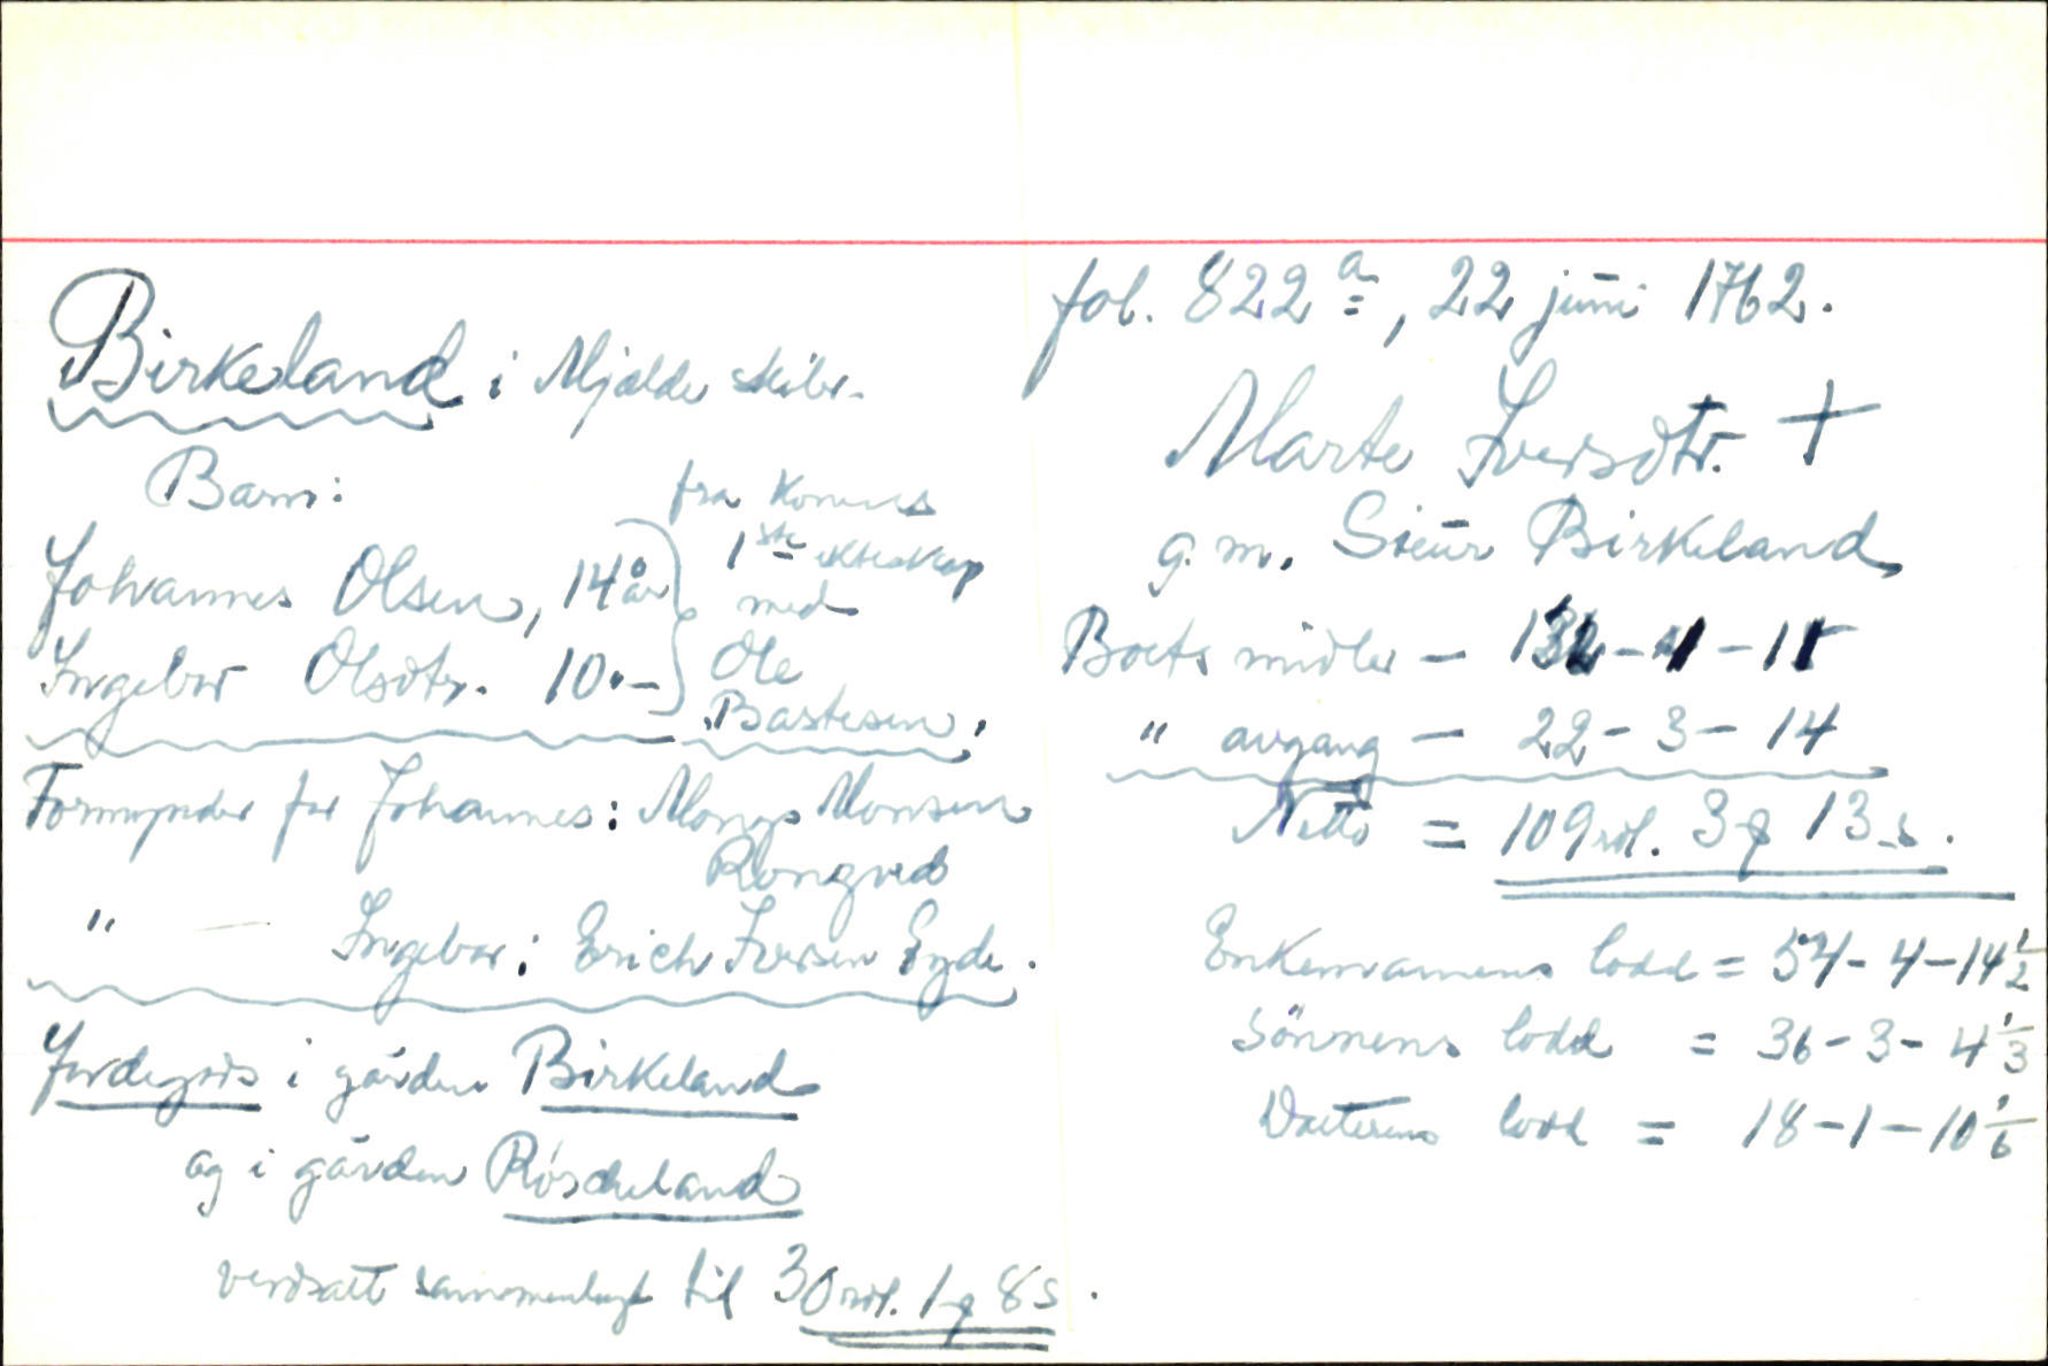 Birkeland i Mjælde skibr.
Barn:
Johannes Olsen, 14 år
Ingebor Olsdtr. 10 " -
fra konens
1ste ekteskap
med
Ole
Bastesen.
Formynder for Johannes: Mongs Monsen
Rongved
" — Ingebor: Erich Iversen Eyde.
Jordegods i gården Birkeland
og i gården Röscheland
verdsatt sammenlagt til 30 rdl. 1 q 8 s.
fol. 822 a, 22 juni 1762.
Marte Iversdtr. +
g.m. Sieur Birkeland
Boets midler - 132 - 1 - 11
" avgang - 22 - 3 - 14
Netto = 109 rdl. 3 q 13 s.
Enkemannens lodd = 54 - 4 - 14 1/2
Sönnens lodd = 36 - 3 - 4 1/3
Datterens lodd = 18 - 1 - 10 1/6